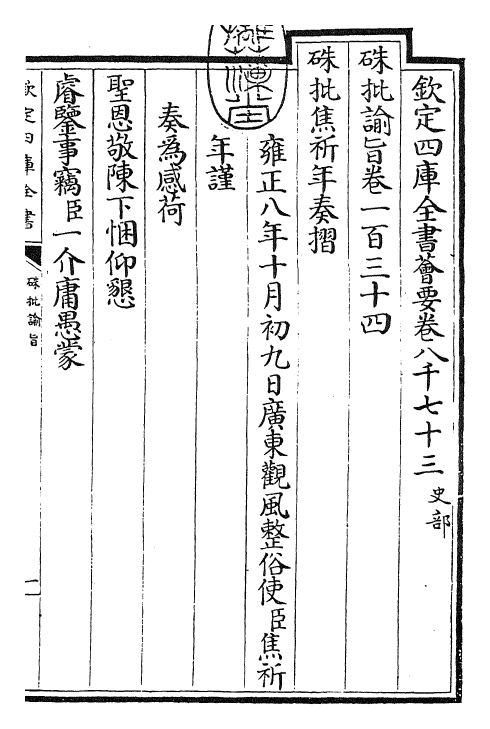 欽定四庫全書薈要卷八千七十三 史部
硃批諭旨卷一百三十四
硃批焦祈年奏摺
雍正八年十月初九日廣東觀風整俗使臣焦祈
年謹
奏為感荷
聖恩敬陳下悃仰懇
睿鑒事竊臣一介庸愚蒙
欽定四庫全書
硃批諭旨
一